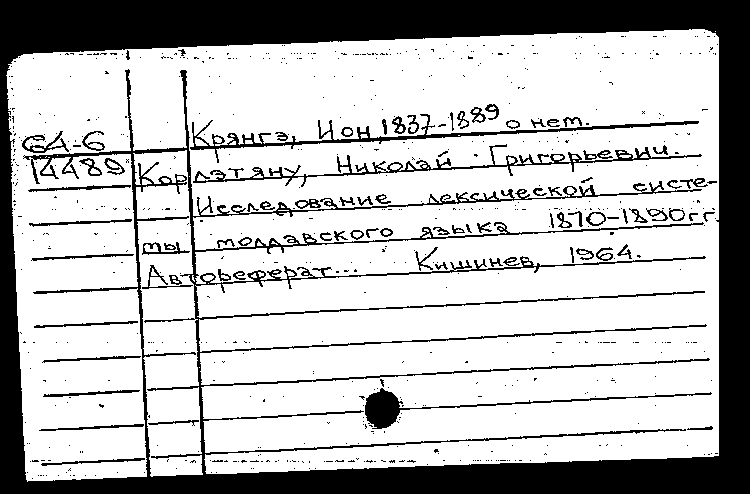 Крянгэ, Ион, 1837-1889 о нем.
64-6
14489
Корлэтяну, Николай Григорьевич.
Исследование лексической систе-
мы молдавского языка 1870-1890гг.
Автореферат... Кишинев, 1964.